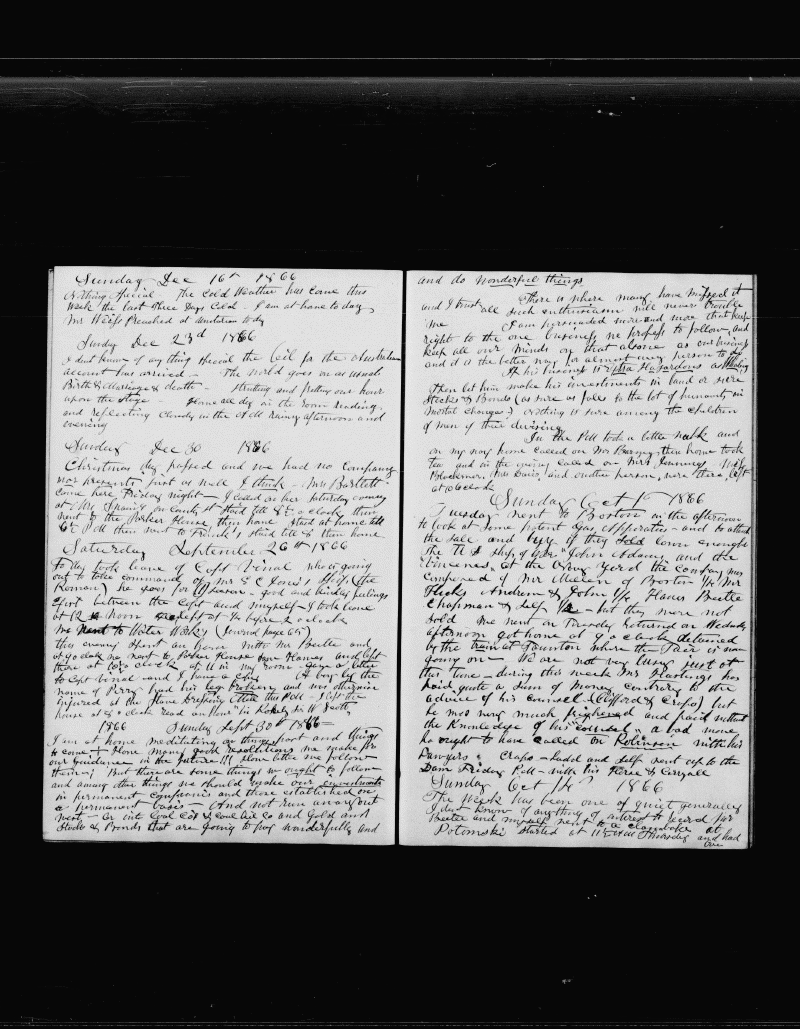 Sunday Dec 16th 1866
Nothing Special The Cold Weather has come this
week the last three days Cold - I am at home to day
Mr Weiss Preached at
Sunday Dec 23d 1866
I dont know of any thing special the Oil for the Australian
account has arrived - The world goes on as usual
Birth & Marriage & death - strutting and fretting our hour
upon the stage - Home all day in the room reading
and reflecting Cloudy in the a rainy afternoon and
evening
Sunday Dec 30 1866
Christmas day passed and we had no Company
nor presents just as well I think - Mrs Bartlett
came here Friday night - I called on her Saturday evening
at Mrs on County st Staid till 8 o clock then
went to the Parker House, then home Staid at home till
6 PM then went to Friend's staid till 8 then home
Saturday September 26th 1866
To day took leave of Capt Vinal who is going
out to take command of Mr E C Jones's Ship (the
Roman) he goes for season - good and kindly feelings
exist between the Capt and myself - I took leave
at 12 Noon left at 1/4 before 2 o clock
We Went to Water Works (Journal page 65)
this evening Spent an hour with Mr Beetle and
at 9 o clock we went to Parker House saw Hawes and left
there at 10 o clock at 11 in my room - gave a letter
to Capt Vinal and I have a copy A boy by the
name of Perry had his leg broken and was otherwise
injured at the Stone this PM - I left the
house at 8 o clock read an hour in W Scott
1866 Sunday Sept 30th 1866
I am at home meditating on things past and things
to come - How many good resolutions we make for
our Guidance in the future & how little we follow
them; But there are some things we ought to follow
and among other things we should make our investments
in permanent companies and those established on
a permanent basis - And not run away out
west - or into Coal Cos & Coal Oil Co and Gold and
Stocks & Bonds that are going to pay wonderfully and
and do wonderful things
There is where many have missed it
and I trust all such enthusiasm will never trouble
me I am persuaded more and more that keep
right to the one business we profess to follow, and
keep all our minds on that alone as our business
and it is the better way for almost any person to do
If his business is extra Hazardous as Whaling
then let him make his investments in land or sure
Stocks & Bonds (as sure as falls to the lot of humanity in
mortal changes) nothing is sure among the children
of men of their devising
In the PM took a little walk and
on my way home called on Mrs then home took
tea and in the evening called on Mrs Jenney, Miss
Mrs Davis, and another person, were there, left
at 10 o clock
Sunday Oct 1866
Tuesday went to Boston in the afternoon
to look at some patent Gas Apparatus - and to attend
the sale and buy if they sold low enough
the U S ships of War "John Adams" and the
"Vincennes" at the Navy Yard the company was
Composed of Mr of Boston 1/4 Mr
Hicks Andrew & John 1/4 Hawes Beetle
Chapman & Self 1/2 - but they were not
sold We went on Tuesday returned on Wednesday
afternoon got home at 9 o clock detained
by the train at Taunton where the Fair is now
going on - We are not very busy just at
this time - during this week Mr Hastings has
paid quite a sum of money contrary to the
advice of his counsel (Clifford & Crapo) but
he was very much frightened and paid without
the knowledge of his counsel - a bad move
he ought to have called on Robinson with his
Lawyers Crapo - and self went up to the
Dam Friday PM - with his Horse & Carryall
Sunday Oct 14 1866
The week has been one of quiet generally
I dont know of anything of interest to record for
Beetle and myself went to a clambake at
Potomski Started at 11 Thursday and had
Over